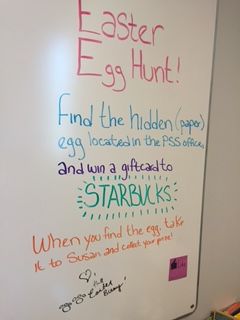 Easter
Egg Hunt!
Find the hidden (paper)
egg located in the PSS office
and win a giftcard to
STARBUCKS
When you find the egg, take
it to Susan and collect your prize!
Easter
Bunny!